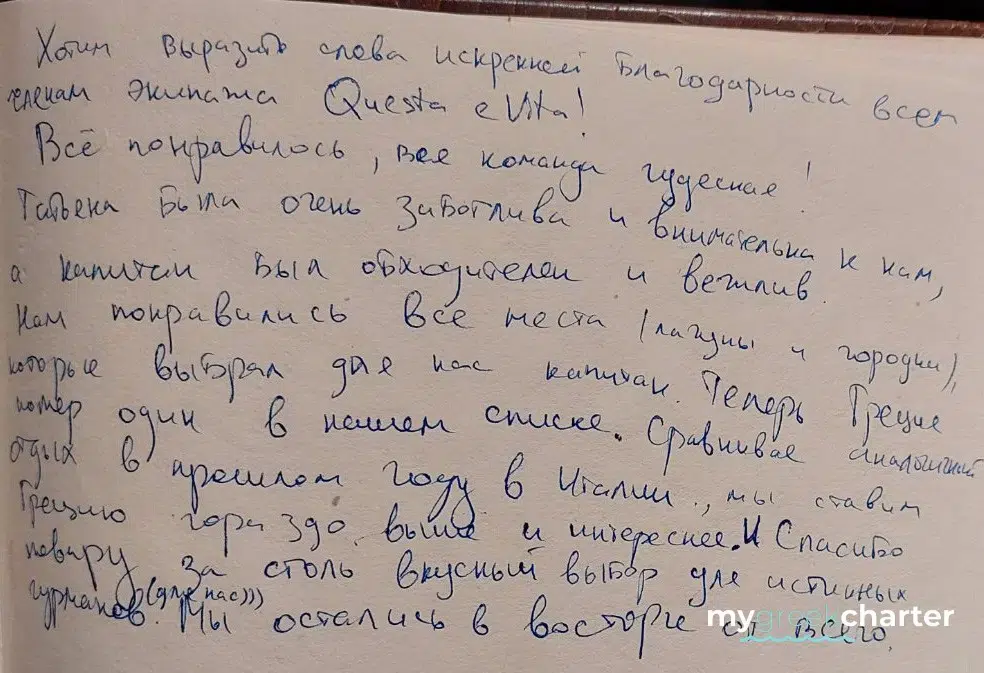 Хотим выразить слова искренней благодарности всем
членам экипажа Questa e Vita!
Всё понравилось, вся команда чудесная!
Татьяна была очень заботлива и внимательна к нам,
а капитан был обходителен и вежлив.
Нам понравились все места (лагуны и городки),
которые выбрал для нас капитан. Теперь Греция
номер один в нашем списке. Сравнивая аналогичный
отдых в прошлом году в Италии, мы ставим
Грецию гораздо выше и интереснее. И Спасибо
повару за столь вкусный выбор для истинных
гурманов. (для нас))) Мы остались в восторге от всего.
mygreekcharter